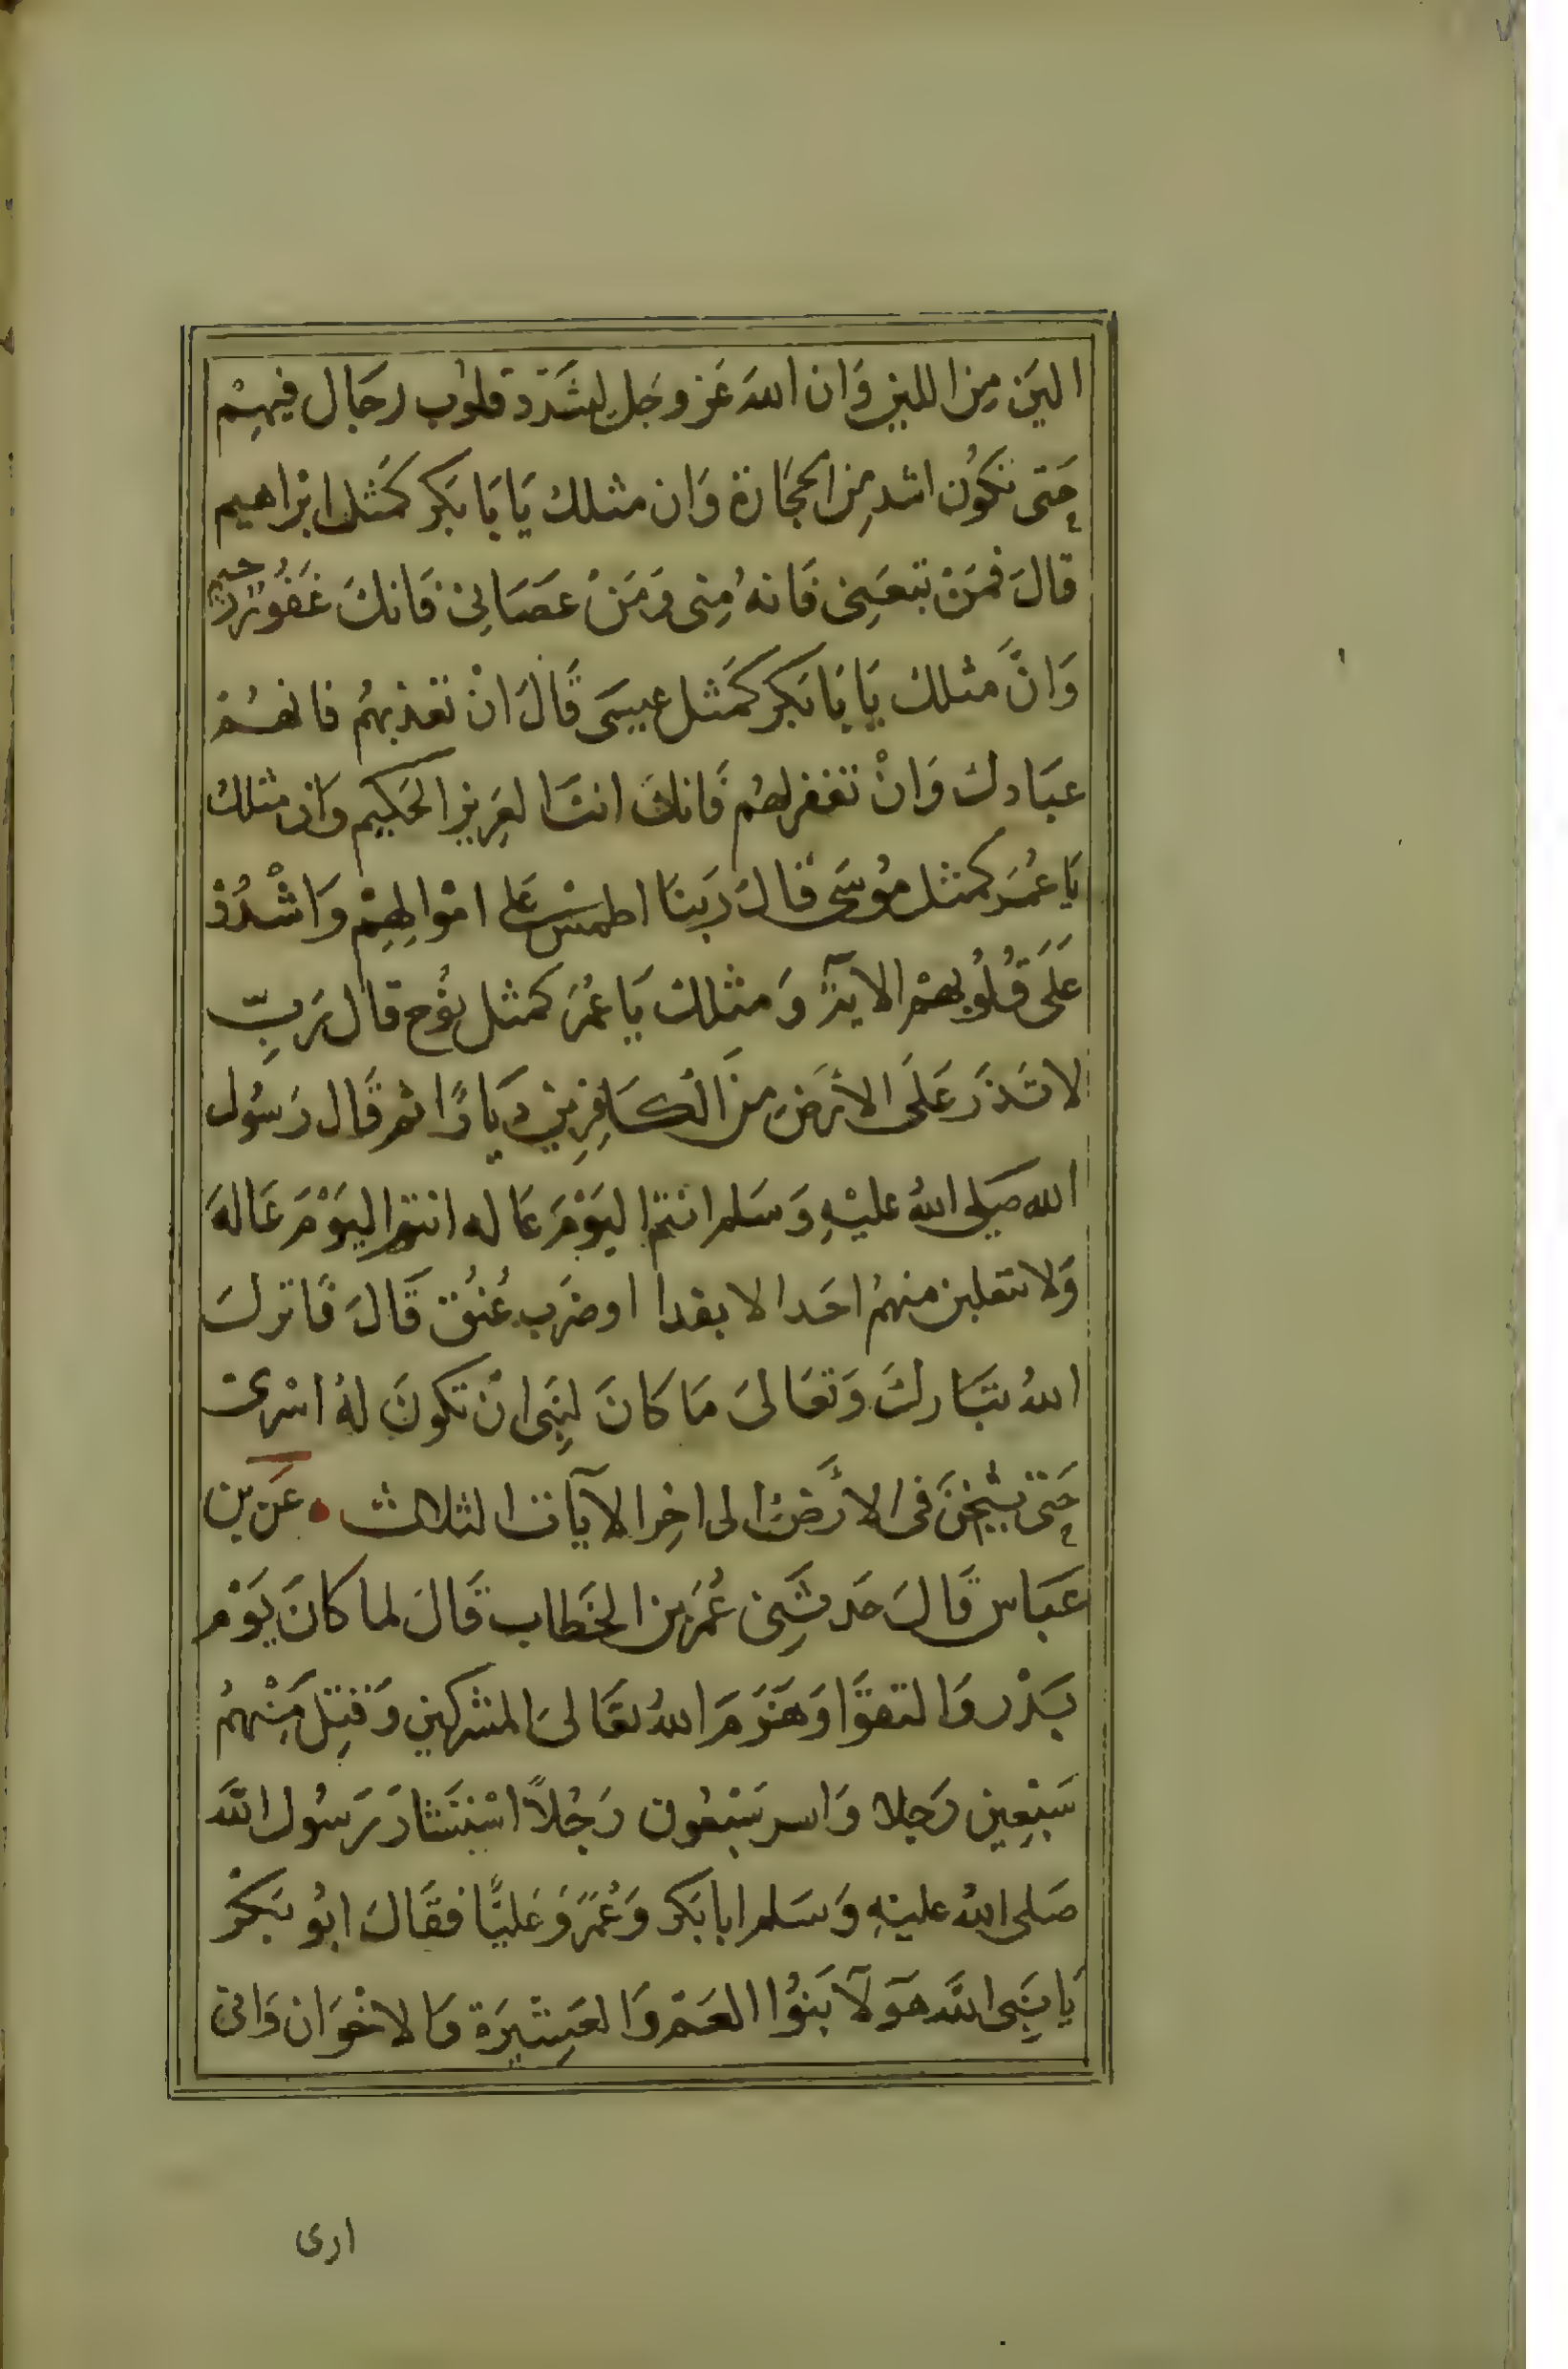 اليَن مِن اللين وَان اللهَ عَز وجَل ليشَدّد قلوُب رجَال فيهِمْ
حَتى تكوُن اشد مِن الحجَارة وَان مثلك يَا بَا بَكر كمَثل ابْراهيم
قالَ فمَنْ تبعَنِى فَانهُ مِنى وَمَنْ عصَانِى فَانكَ غَفُورٌ رحيم
وَانَّ مثلكَ يَا بَا بَكر كمَثل عيسَى قَالَ انْ تعذبهُم فانهُم
عبَادكَ وَانْ تغفر لهُم فَانكَ انتَ العَزيز الحَكيم وَان مثلكَ
يَا عُمَر كمثل مُوسَى قالَ رَبنَا اطمسْ عَلى امْوالهِمْ وَاشْدُدْ
عَلَى قُلُوبهمْ الآيَة وَمثلكَ يَا عُمَر كمثل نوُح قال رَبِّ
لا تَذَر عَلَى الارْضِ مِنَ الْكَافِرِينَ دَيَارًا ثم قَال رَسُول
الله صَلى اللهُ عليْهِ وَسَلم انتمْ اليَوْمَ عَاله انتم اليَوْمَ عَالهَ
وَلا تنقلبن منهمُ احَد الا بفدا او ضرَب عُنُق قَالَ فَانزلَ
اللهُ تبَاركَ وَتعَالىَ مَا كَانَ لنِبَى انْ تكونَ لهُ اسْرىَ
حَتى يثخِنَ فى الارَْضْ الى اخِر الآيات الثلاث • عَن بن
عَبَاس قَالَ حَدثنَِى عُمَر بن الخَطاب قَالَ لما كانَ يَوْم
بَدْر وَالتقوَا وَهَزَمَ اللهُ تعَالىَ المشركين وَقتِلَ مِنْهمُ
سَبْعِين رَجلا وَاسر سَبْعُون رَجُلاً اسْتشَارَ رَسُول اللهَ
صَلى اللهُ عليْهِ وَسَلم ابا بَكر وَعُمَر وَعَليًّا فقَالَ ابُو بَكْر
يَا نَبِى اللهَ هَوَلآ بَنُوا العَم وَالعَشيْرَة وَالاخْوَان وَانى
ارى